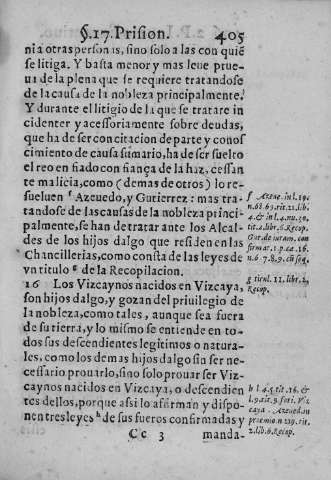 §.17. Prision. 405
ni a otras personas, sino solo a las con quiẽ
se litiga. Y basta menor y mas leue prue-
ua de la plena que se requiere tratandose
de la causa de la nobleza principalmente.
Y durante el litigio de la que se tratare in
cidenter y acessoriamente sobre deudas,
que ha de ser con citacion de parte y conos
cimiento de causa sumario, ha de ser suelto
el reo en fiado con fiança de la haz, cessan
te malicia, como (demas de otros) lo re-
sueluen f Azeuedo, y Gutierrez: mas tra-
tandose de las causas de la nobleza princi-
palmente, se han de tratar ante los Alcal-
des de los hijos dalgo que residen en las
Chancillerias, como consta de las leyes de
vn titulo g de la Recopilacion.
16 Los Vizcaynos nacidos en Vizcaya,
son hijos dalgo, y gozan del priuilegio de
la nobleza, como tales, aunque sea fuera
de su tierra, y lo mismo se entiende en to-
dos sus descendientes legitimos o natura-
les, como los demas hijos dalgo sin ser ne-
cessario prouarlo, sino solo prouar ser Viz-
caynos nacidos en Vizcaya, o descendien
tes dellos, porque assi lo afirman y dispo-
nen tres leyes h de sus fueros confirmadas y
Cc 3 manda-
f Azeue. in l. 19.
n. 68. 69. tit. 21. lib.
4. & in l. 4. nu. 30.
tit. 2. libr. 6. Recop.
Gut. de iuram. con
firmat. 1. p. ca. 16.
n. 6. 7. 8. 9. cũ seq.
g titul. 11. libr. 2.
Recop.
h l. 4. 5. tit. 16. &
l. 9. tit. 9. fori Viz
caya. Azeued. in
proemio n. 239. tit.
2. lib. 6. Recop.